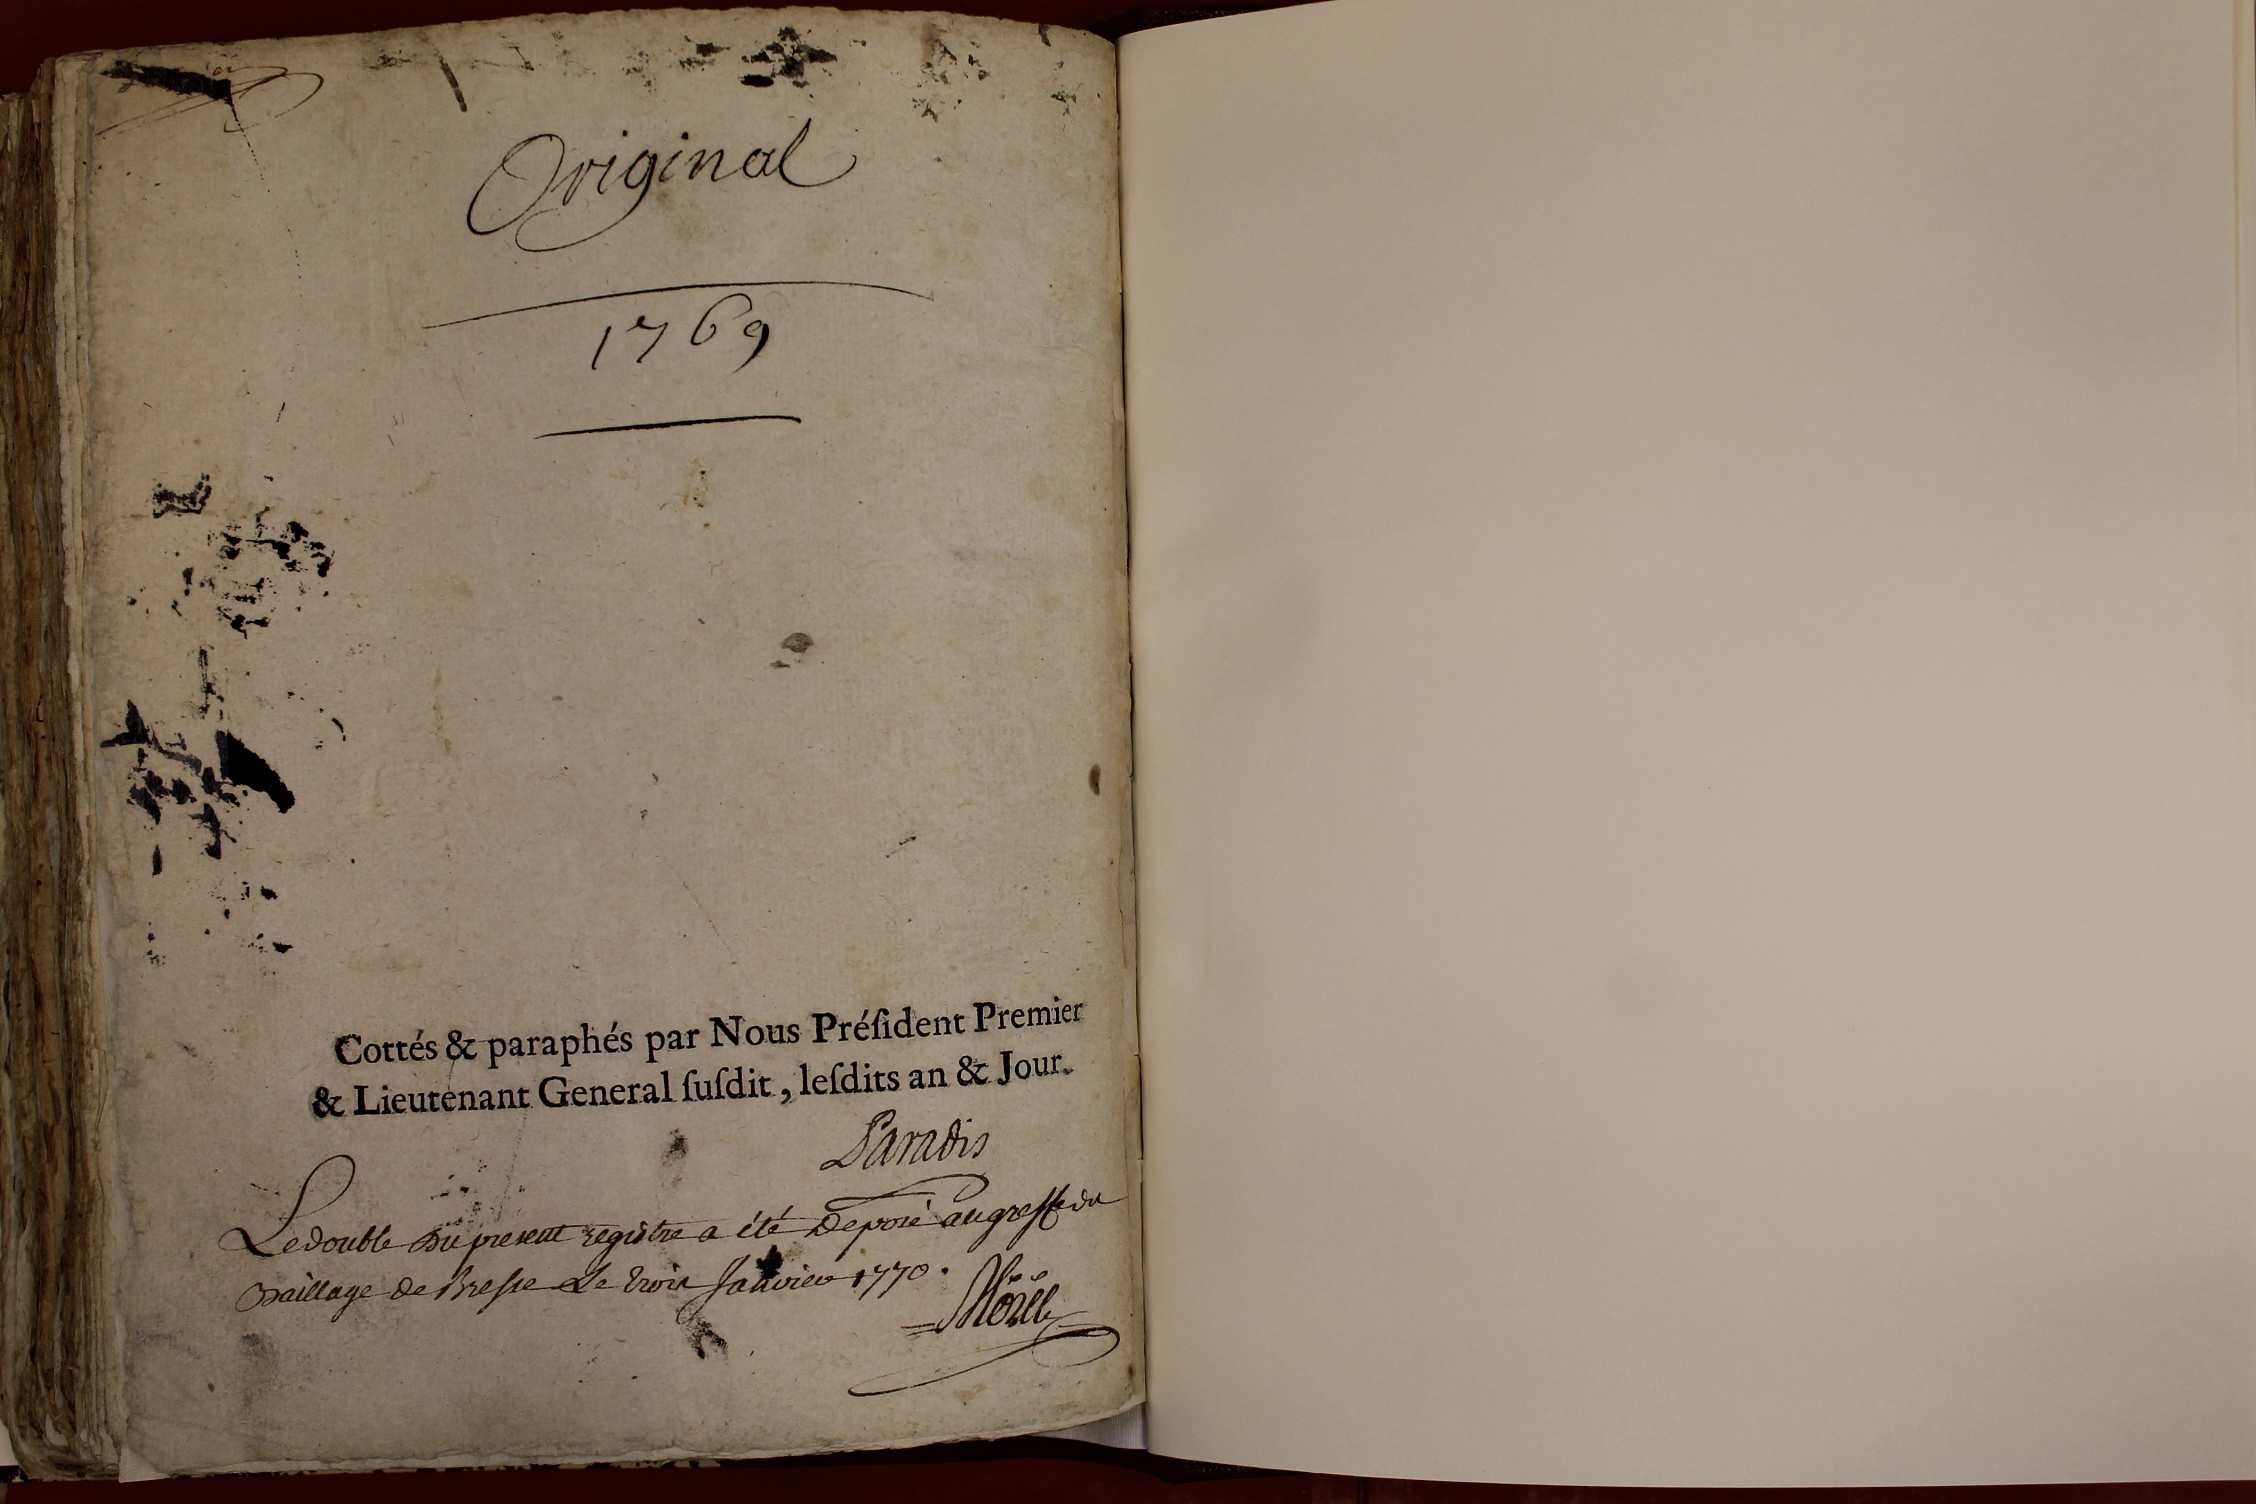 Original
1769
Cottés & paraphés par Nous Préſident Premier
& Lieutenant General ſuſdit, leſdits an & Jour.
Paradis
Le double du present registre a été deposé au greffe du
Baillage de Bresse Le trois Janvier 1770.